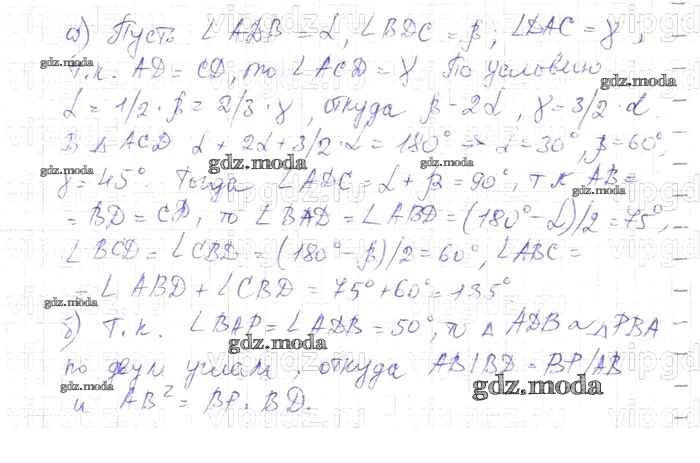 а) Пусть ∠ADB = α, ∠BDC = β; ∠DAC = γ,
т.к. AD = CD, то ∠ACD = γ По условию
α = 1/2 · β = 2/3 · γ, откуда β - 2α, γ = 3/2 · α.
В △ACD α + 2α + 3/2 · α = 180° => α = 30°, β = 60°,
γ = 45° Тогда ∠ADC = α + β = 90°, т.к AB =
= BD = CD, то ∠BAD = ∠ABD = (180° - α)/2 = 75°,
∠BCD = ∠CBD = (180° - β)/2 = 60°, ∠ABC =
= ∠ABD + ∠CBD = 75° + 60° = 135°
б) Т.к. ∠BAP = ∠ADB = 50°, то △ADB ~ △PBA
по двум углам, откуда AB/BD = BP/AB
и AB² = BP · BD.
gdz.moda
gdz.moda
gdz.moda
gdz.moda
gdz.moda
gdz.moda
gdz.moda
gdz.moda
gdz.moda